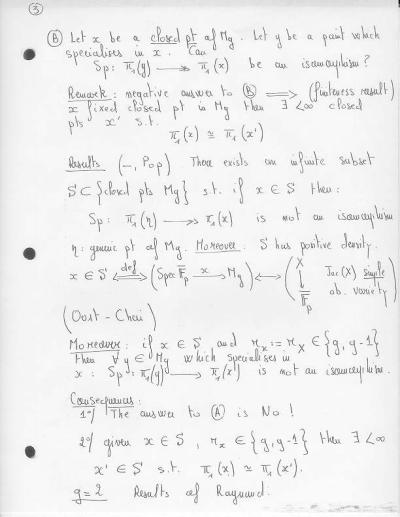 ③
Ⓑ Let x be a closed pt of Mg. Let y be a point which
specialises in x. Can
Sp: π₁(y) ⟶ π₁(x) be an isomorphism?
Remark: negative answer to Ⓑ ⟹ (finiteness result)
x fixed closed pt in Mg then ∃ <∞ closed
pts x' s.t.
π₁(x) ≅ π₁(x')
Results (–, Pop) There exists an infinite subset
S ⊂ {closed pts Mg} s.t. if x ∈ S then:
Sp: π₁(η) ⟶ π₁(x) is not an isomorphism
η: generic pt of Mg. Moreover: S has positive density.
x ∈ S ⟺ def (Spec F̄p ⟶ x Mg) ⟷ (X ↓ F̄p Jac(X) simple ab. variety)
(Oort - Chai)
Moreover: if x ∈ S and r_x := r_X ∈ {g, g-1}
then ∀ y ∈ Mg which specialises in
x: Sp: π₁(y) ⟶ π₁(x) is not an isomorphism.
Consequences:
1°/ The answer to Ⓐ is No!
2°/ given x ∈ S, r_x ∈ {g, g-1} then ∃ <∞
x' ∈ S s.t. π₁(x) ≅ π₁(x').
g=2 Results of Raynaud.